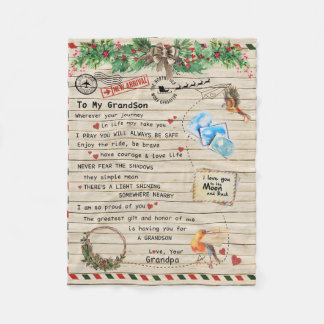 NEW ARRIVAL
To My GrandSon
Wherever your journey
in life may take you
I PRAY YOU WILL ALWAYS BE SAFE
Enjoy the ride, be brave
have courage & love Life
NEVER FEAR THE SHADOWS
they simple mean
THERE'S A LIGHT SHINING
SOMEWHERE NEARBY
I am so proud of you
The greatest gift and honor of me
is having you for
a GRANDSON
Love, Your
Grandpa
I love you
to the
Moon
and Back